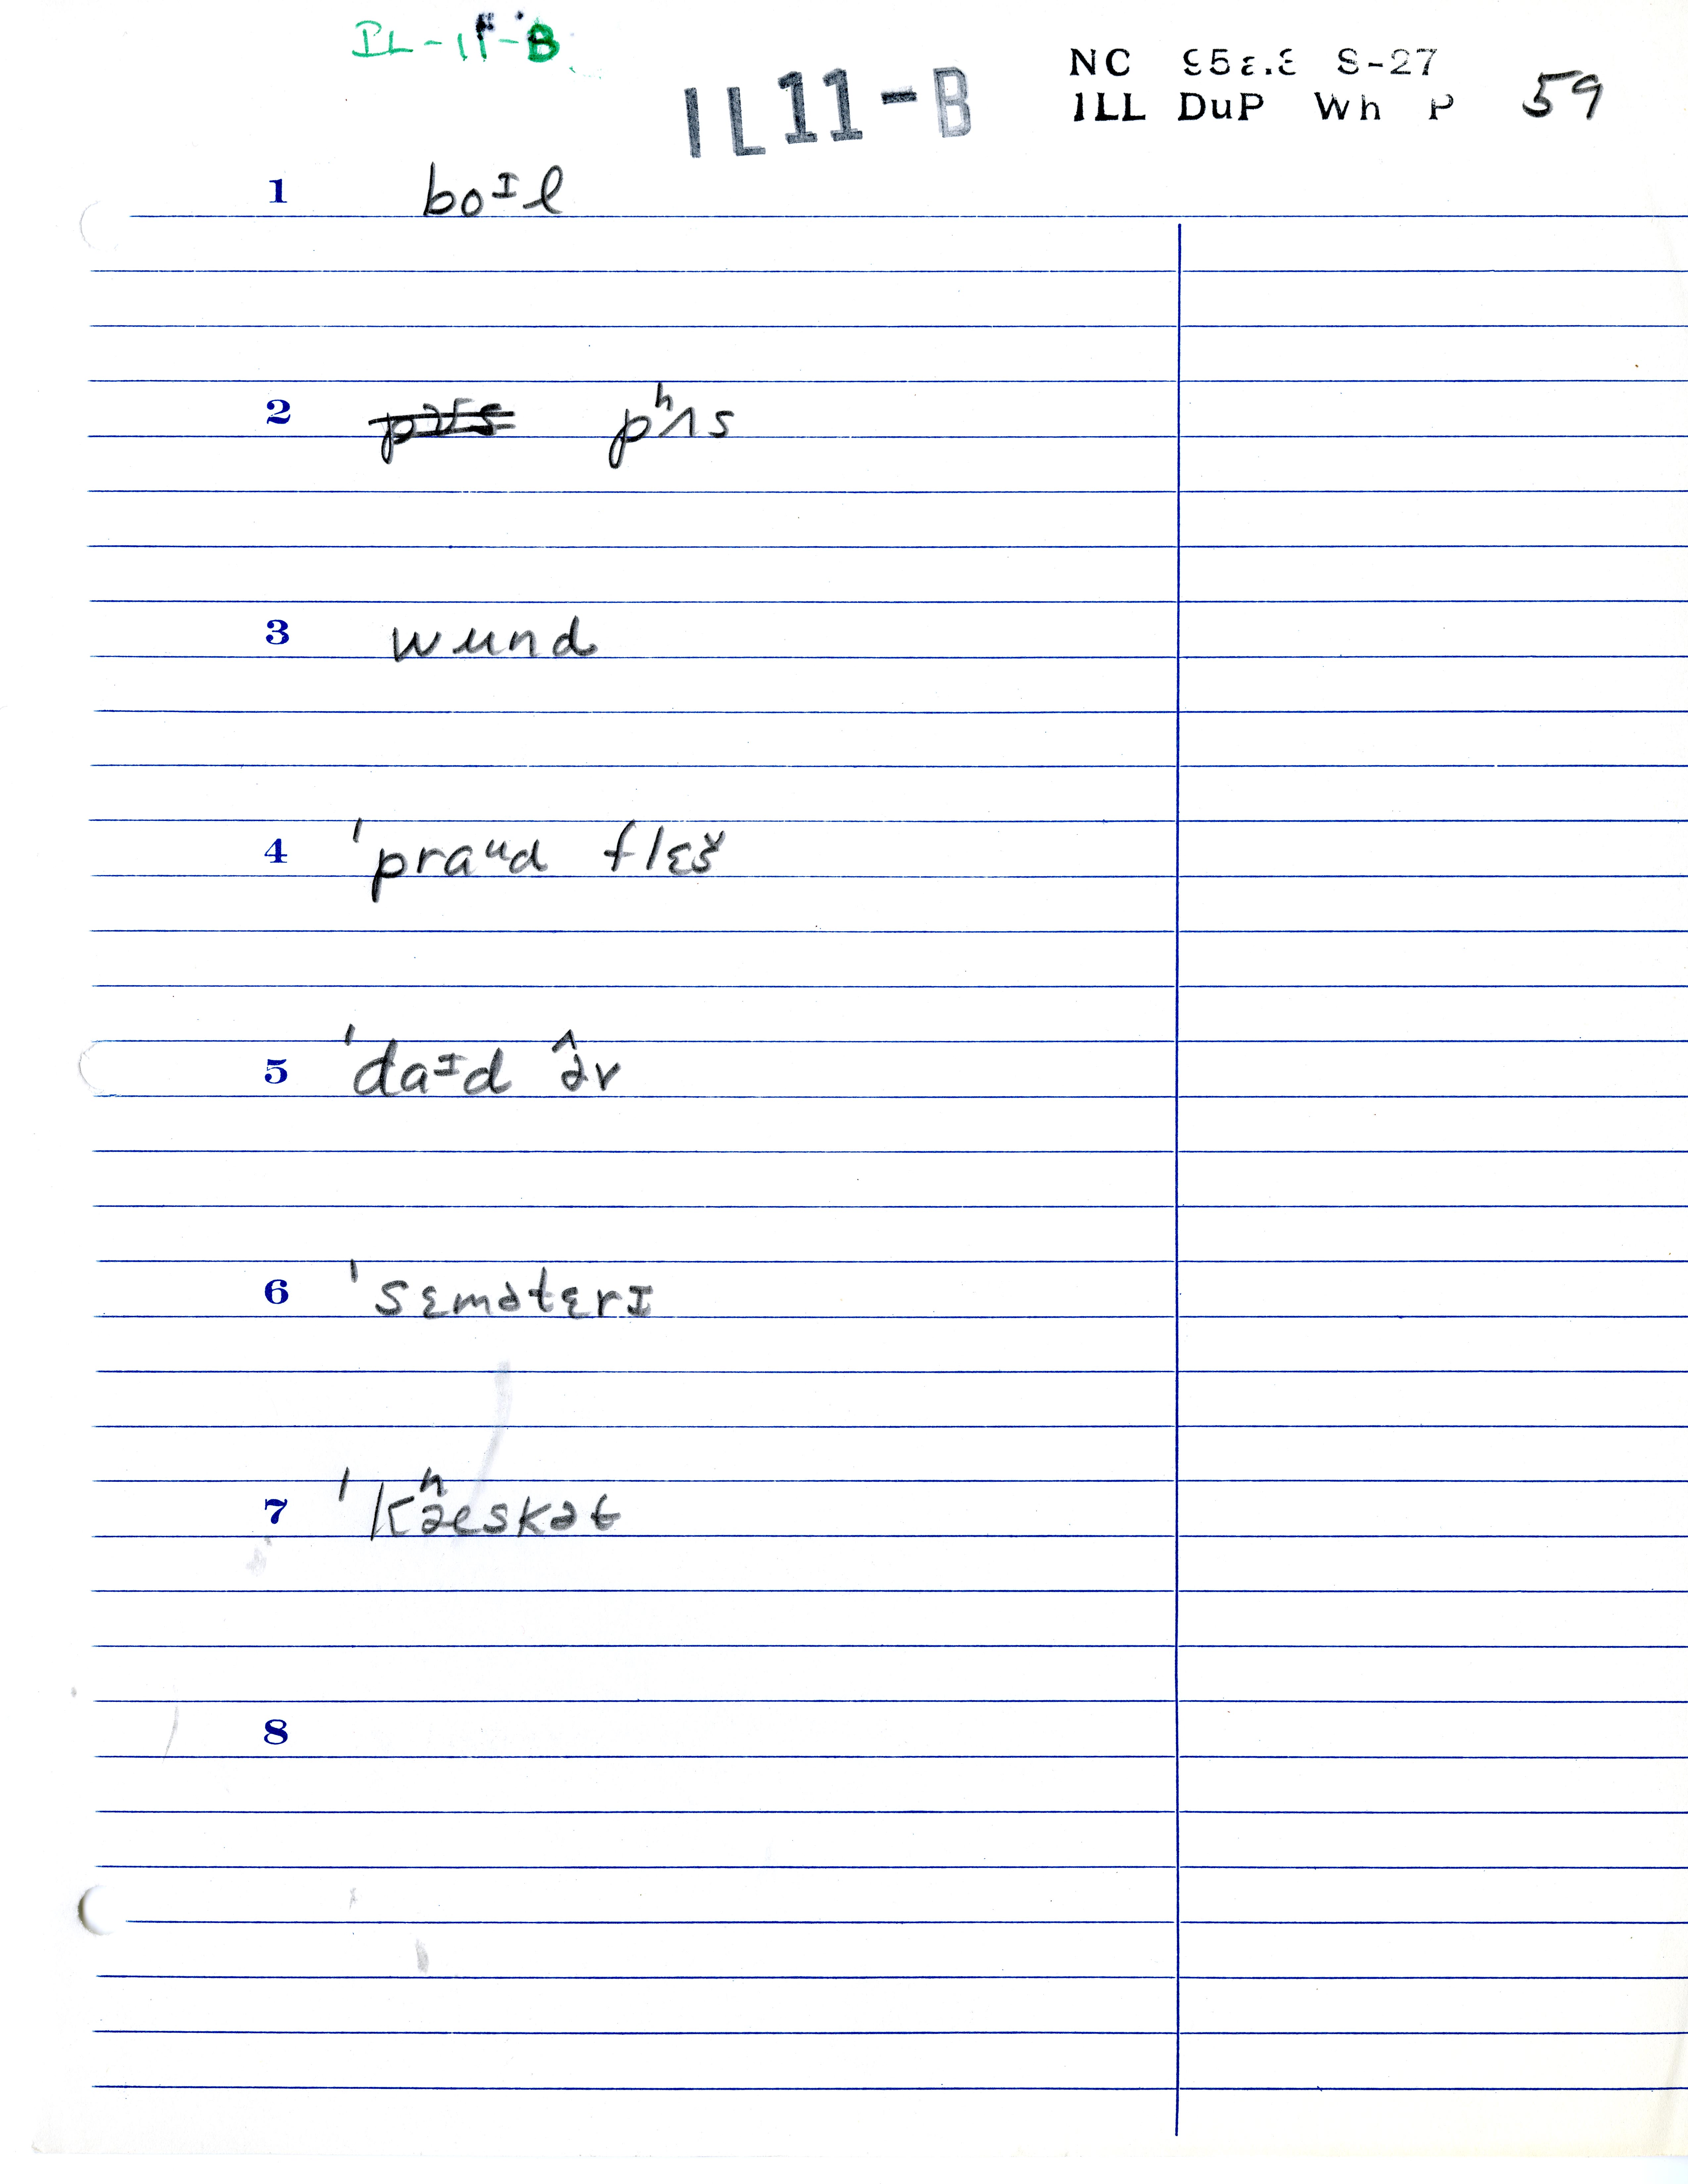 IL-11-B
IL11-B
NC 95ε.3 S-27
ILL DuP Wh P 59
1 boᴵl
2 pʰʌs
3 wund
4 ˈpraᵘd flɛš
5 ˈdaᴵd ə̂v
6 ˈsɛmətɛrɪ
7 ˈkʰæskət
8